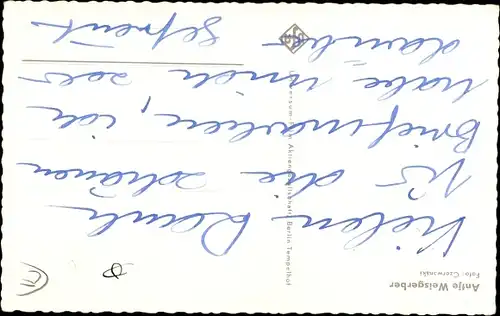 Vielen Dank
für die schönen
Briefmarken, ich
habe mich sehr
darüber
gefreut
Ufa
Universum-Film Aktiengesellschaft, Berlin-Tempelhof
Antje Weisgerber
Foto: Czerwonski